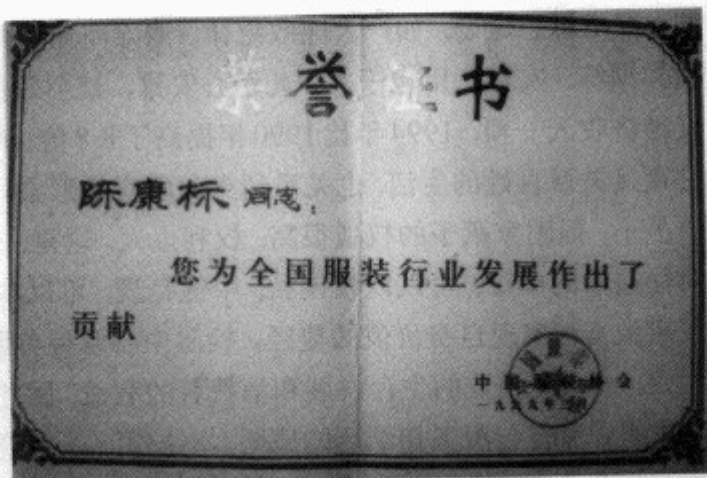 荣誉证书
陈康标 同志:
您为全国服装行业发展作出了
贡献
中国服装协会
一九九九年